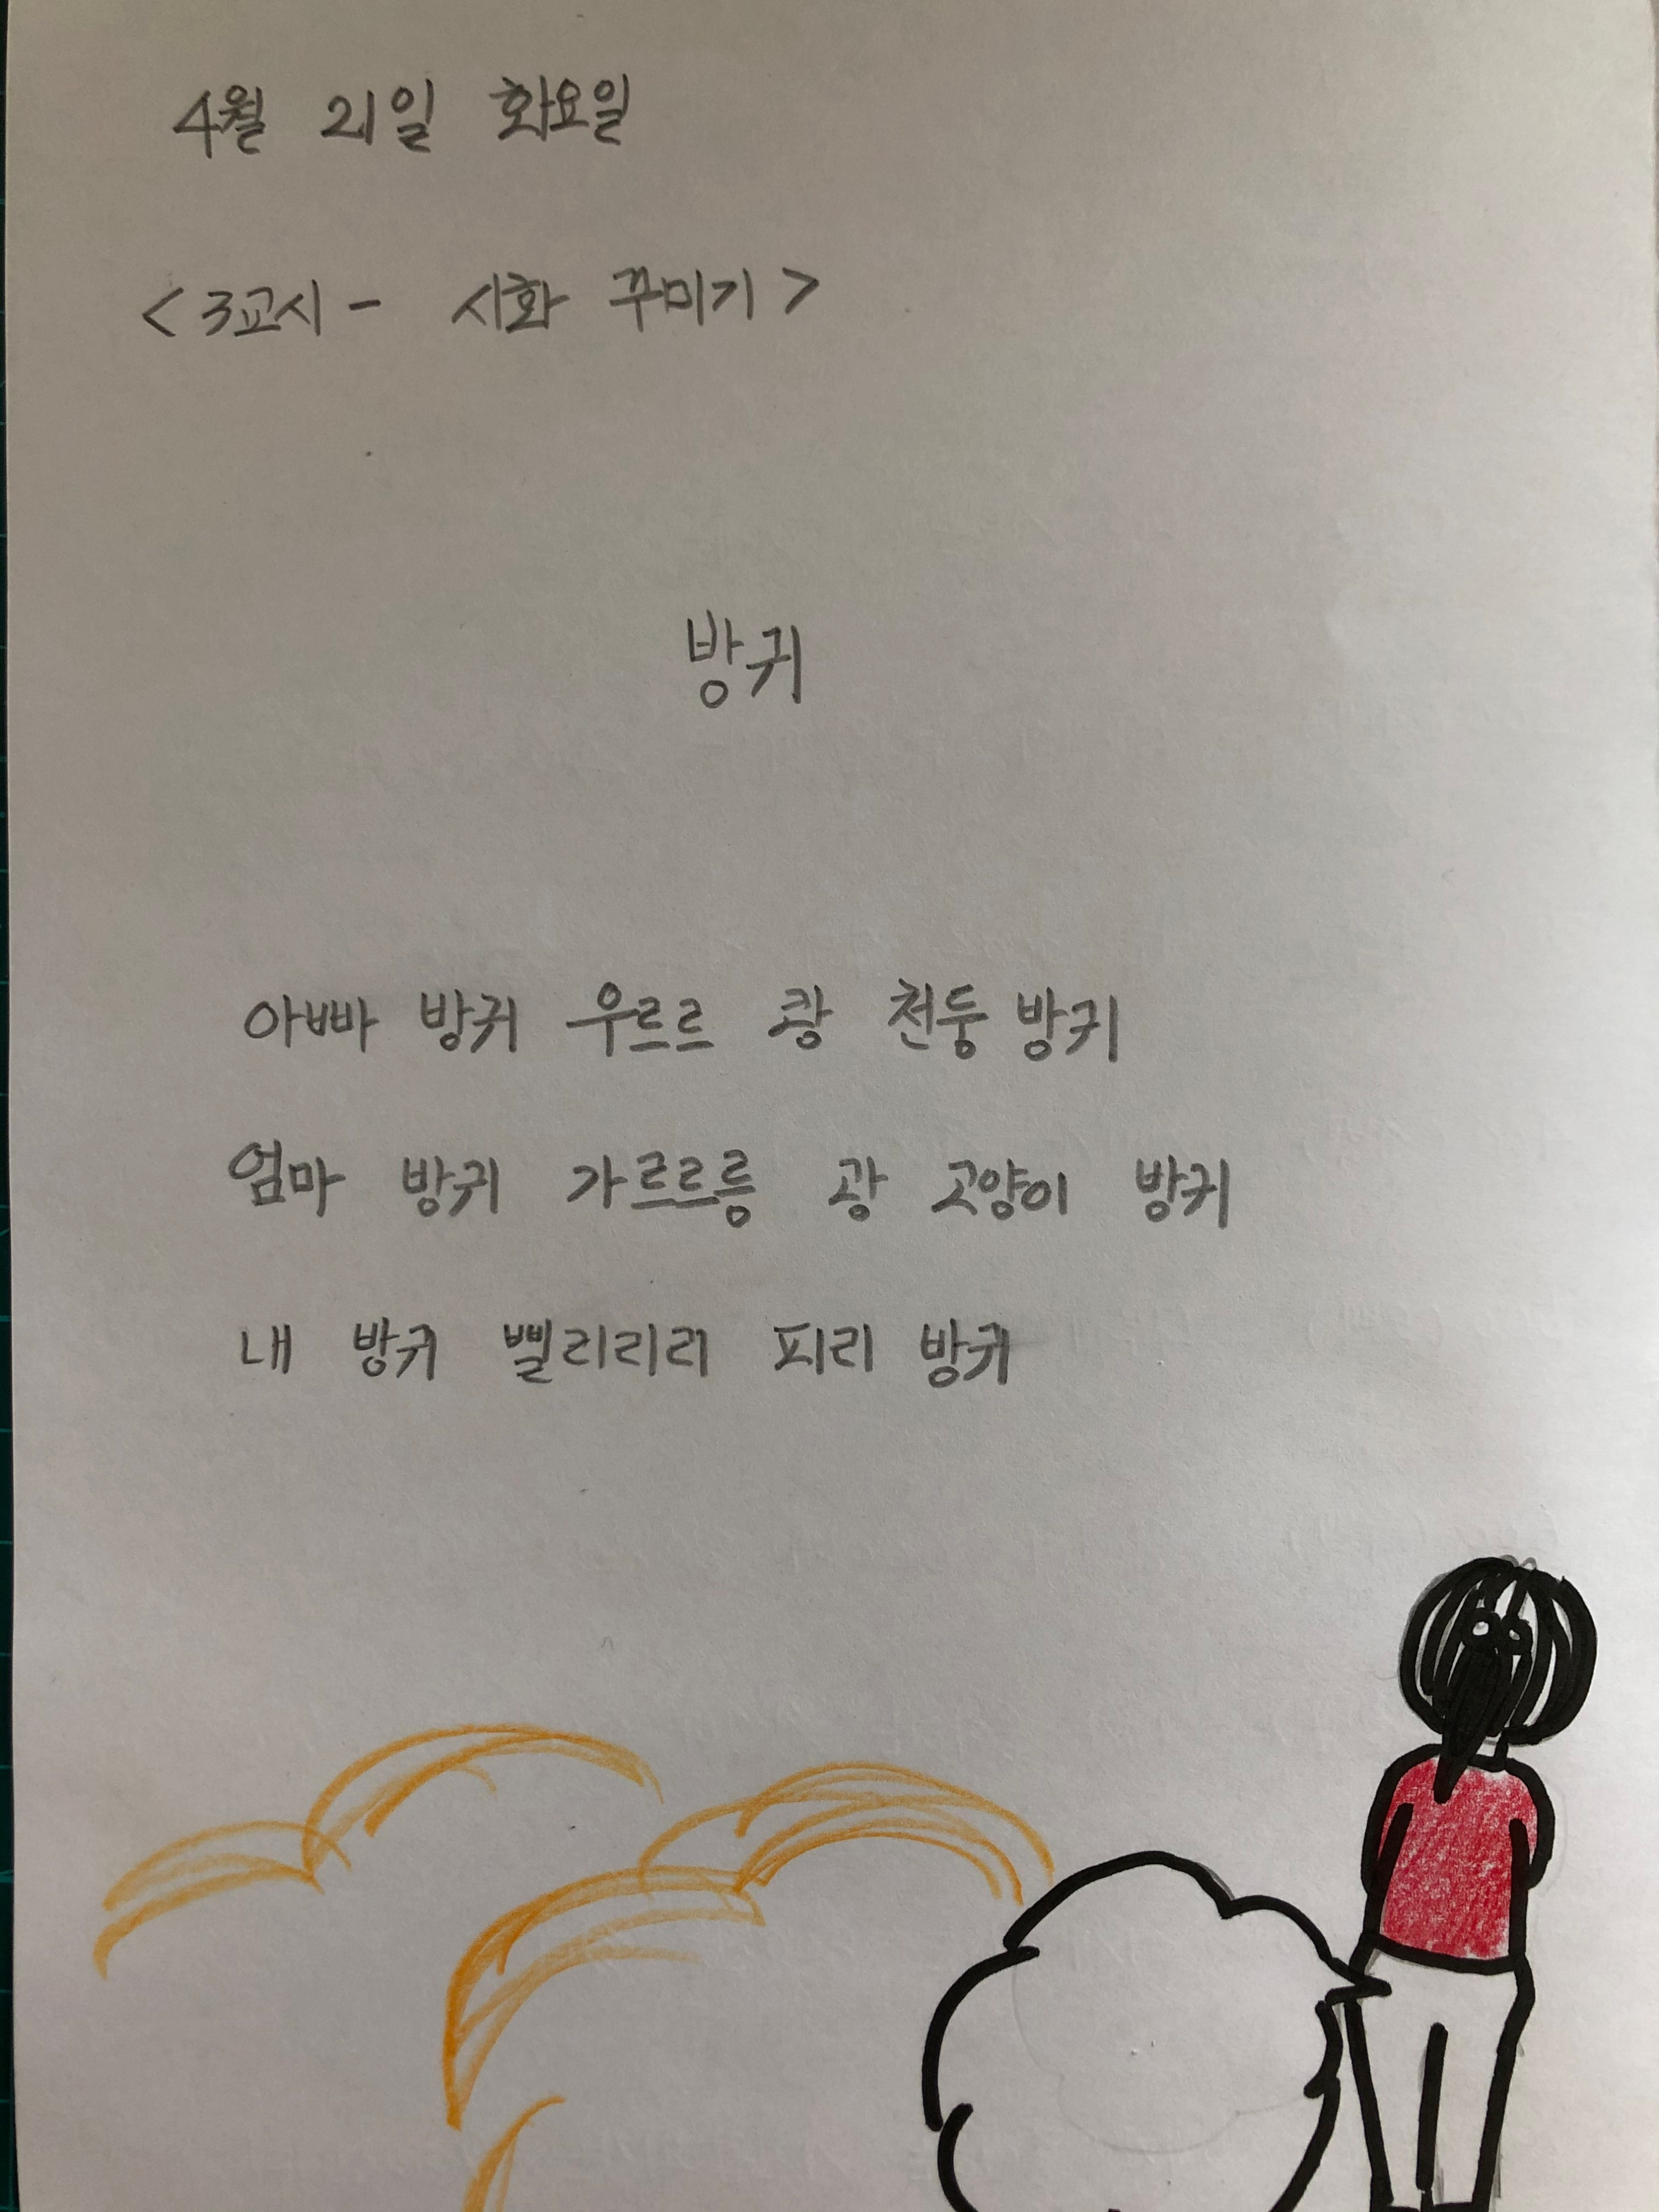 4월 21일 화요일
<3교시 - 시화 꾸미기>
방귀
아빠 방귀 우르르 쾅 천둥 방귀
엄마 방귀 가르르릉 광 고양이 방귀
내 방귀 삘리리리 피리 방귀